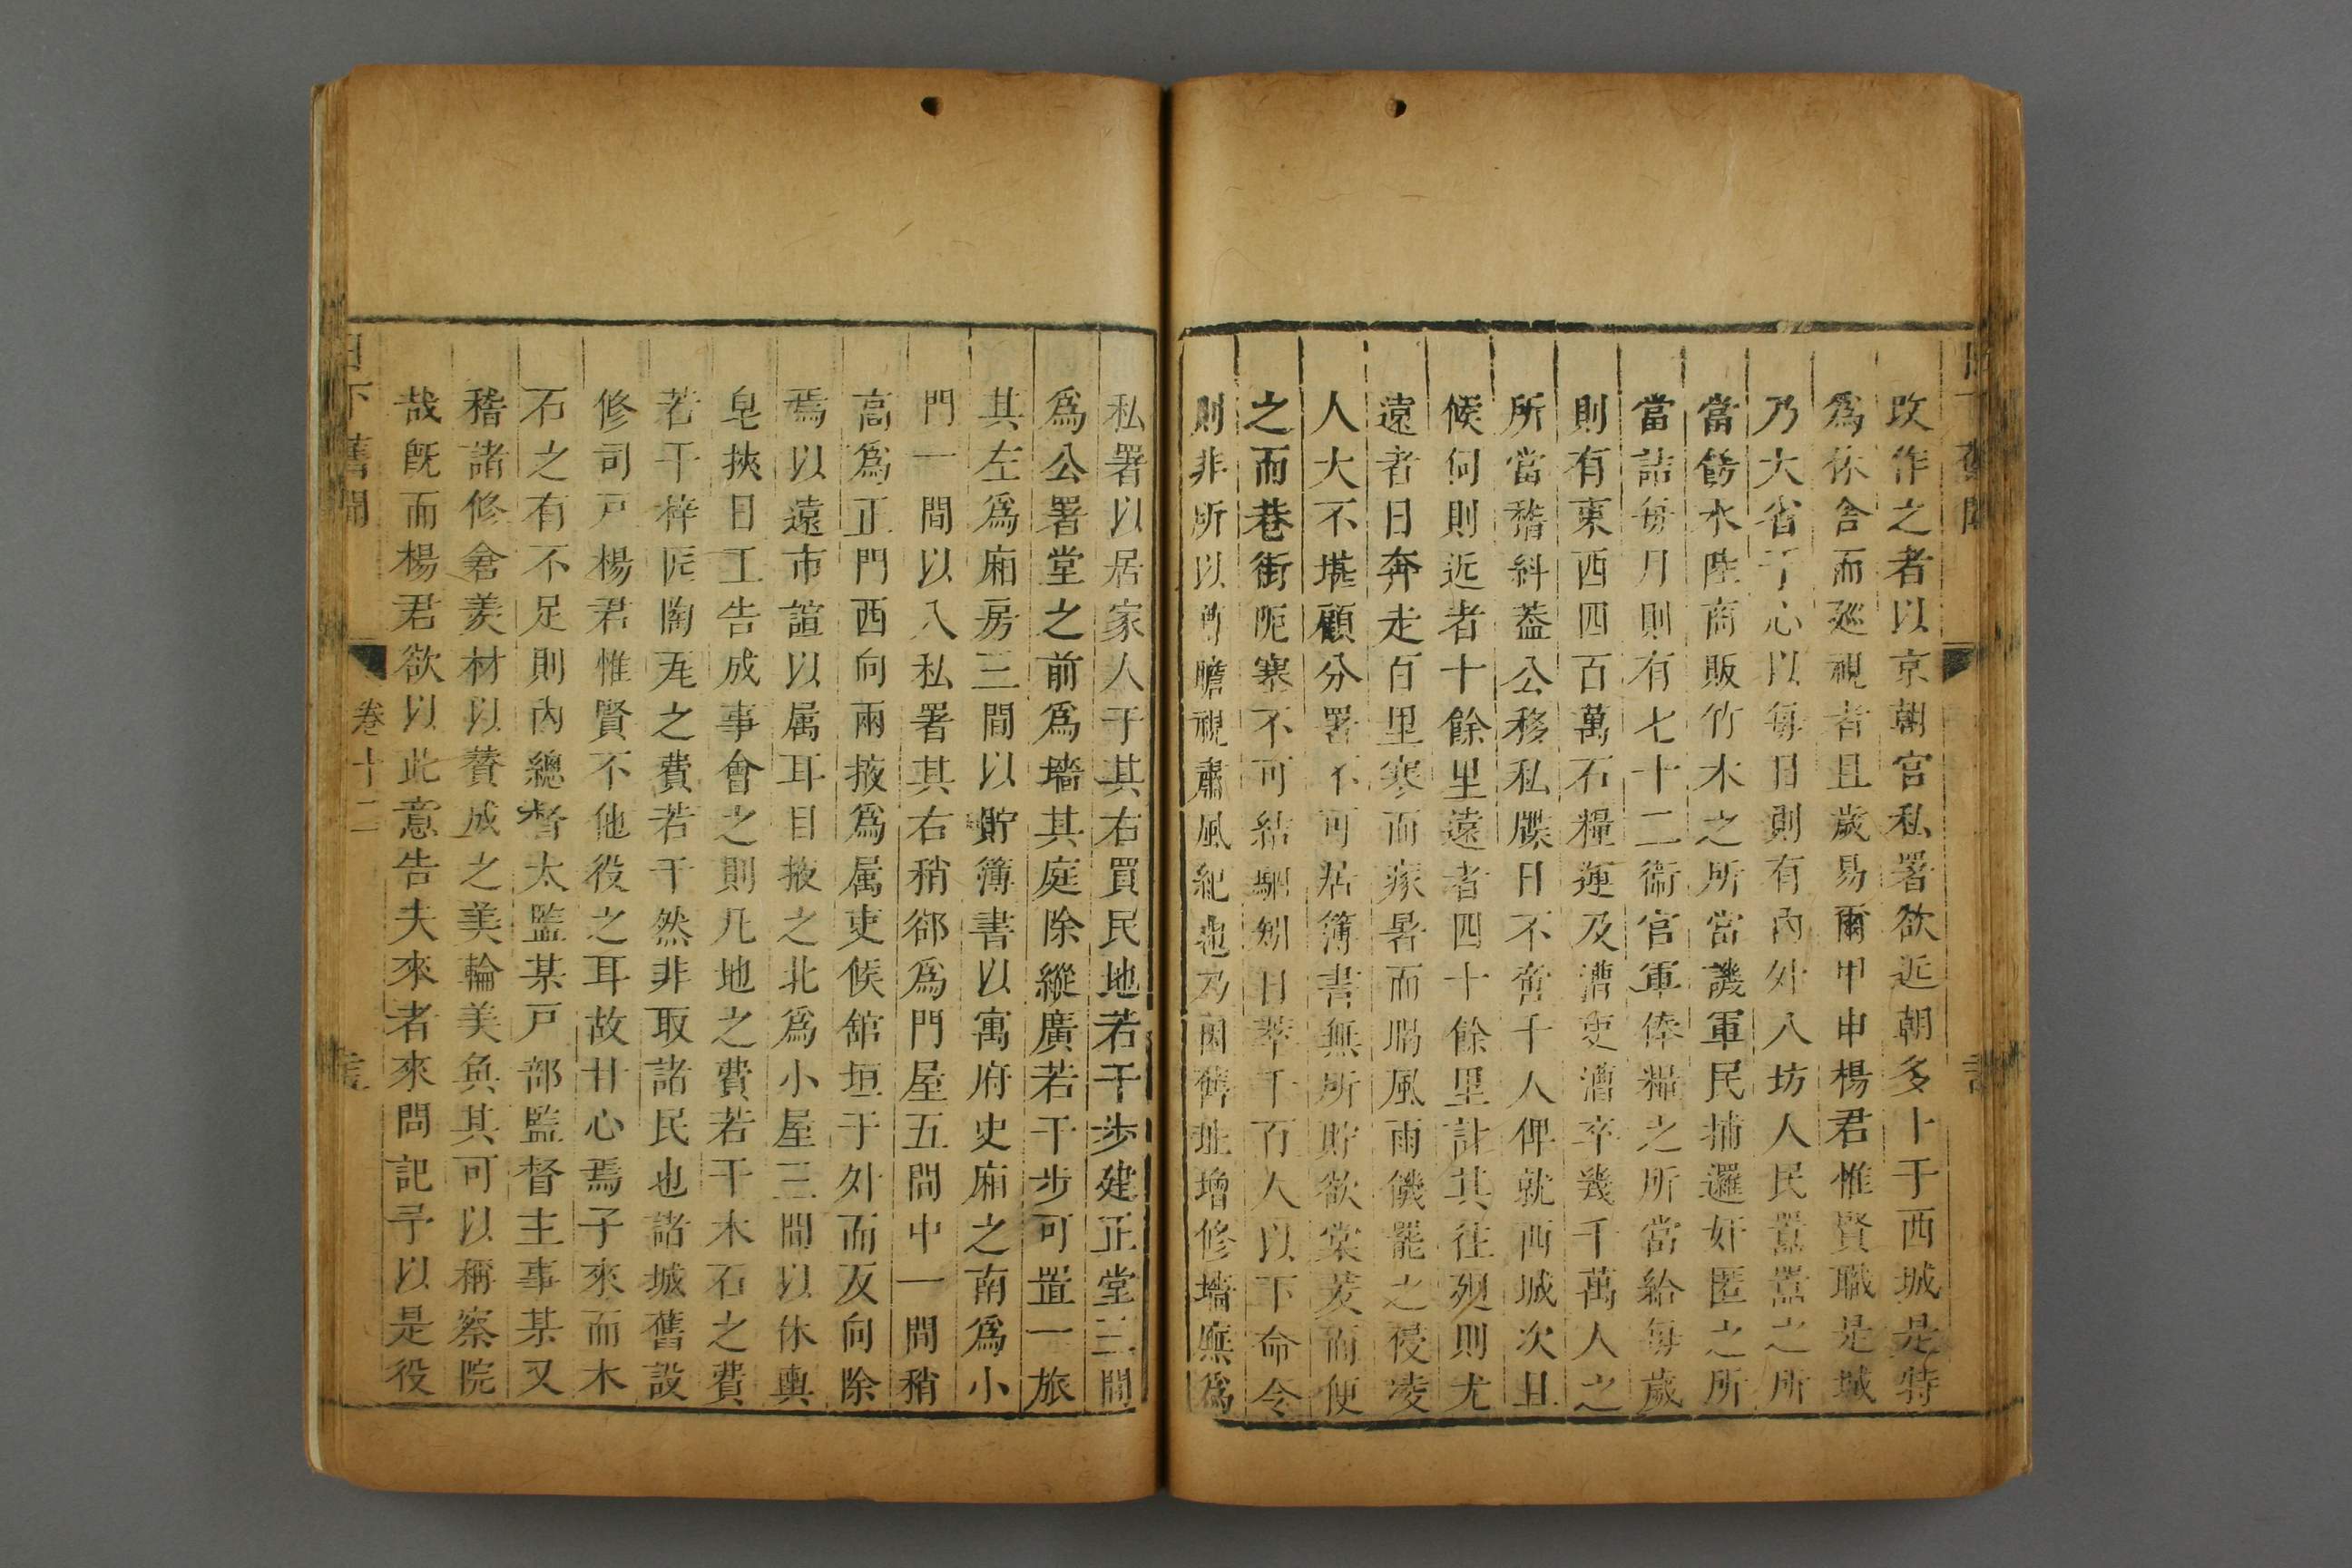 改作之者以京朝官私署欲近朝多卜于西城是特
爲休舍而廵視者且歲易爾甲申楊君惟賢職是城
乃大省于心以每日則有內外八坊人民嚚嚚之所
當飭水陸商販竹木之所當譏軍民捕邏奸匿之所
當詰每月則有七十二衞官軍俸糧之所當給每歲
則有東西四百萬石糧運及漕吏漕卒幾千萬人之
所當稽糾葢公移私牒日不啻千人俾就西城次且
候伺則近者十餘里遠者四十餘里計其徃廻則尤
遠者日奔走百里寒而瘃暑而暍風雨僟罷之侵凌
人大不堪顧分署不可居簿書無所貯欲棠茇而便
之而巷街阨塞不可結駟矧日萃千百人以下命令
則非所以尊瞻視肅風紀也乃因舊址增修墻廡爲
私署以居家人于其右買民地若干步建正堂三間
爲公署堂之前爲墻其庭除縱廣若干步可置一旅
其左爲廂房三間以貯簿書以寓府史廂之南爲小
門一間以入私署其右稍郤爲門屋五間中一間稍
高爲正門西向兩掖爲属吏候舘垣于外而友向除
焉以遠市諠以属耳目掖之北爲小屋三間以休輿
皂挾日工告成事會之則凡地之費若干木石之費
若干梓匠陶瓦之費若干然非取諸民也諸城舊設
修司戸楊君惟賢不他役之耳故甘心焉子來而木
石之有不足則內總督太監某戸部監督主事某又
稽諸修倉羨材以贊成之美輪美奐其可以稱察院
哉旣而楊君欲以此意告夫來者來問記予以是役
日下舊聞
卷十二